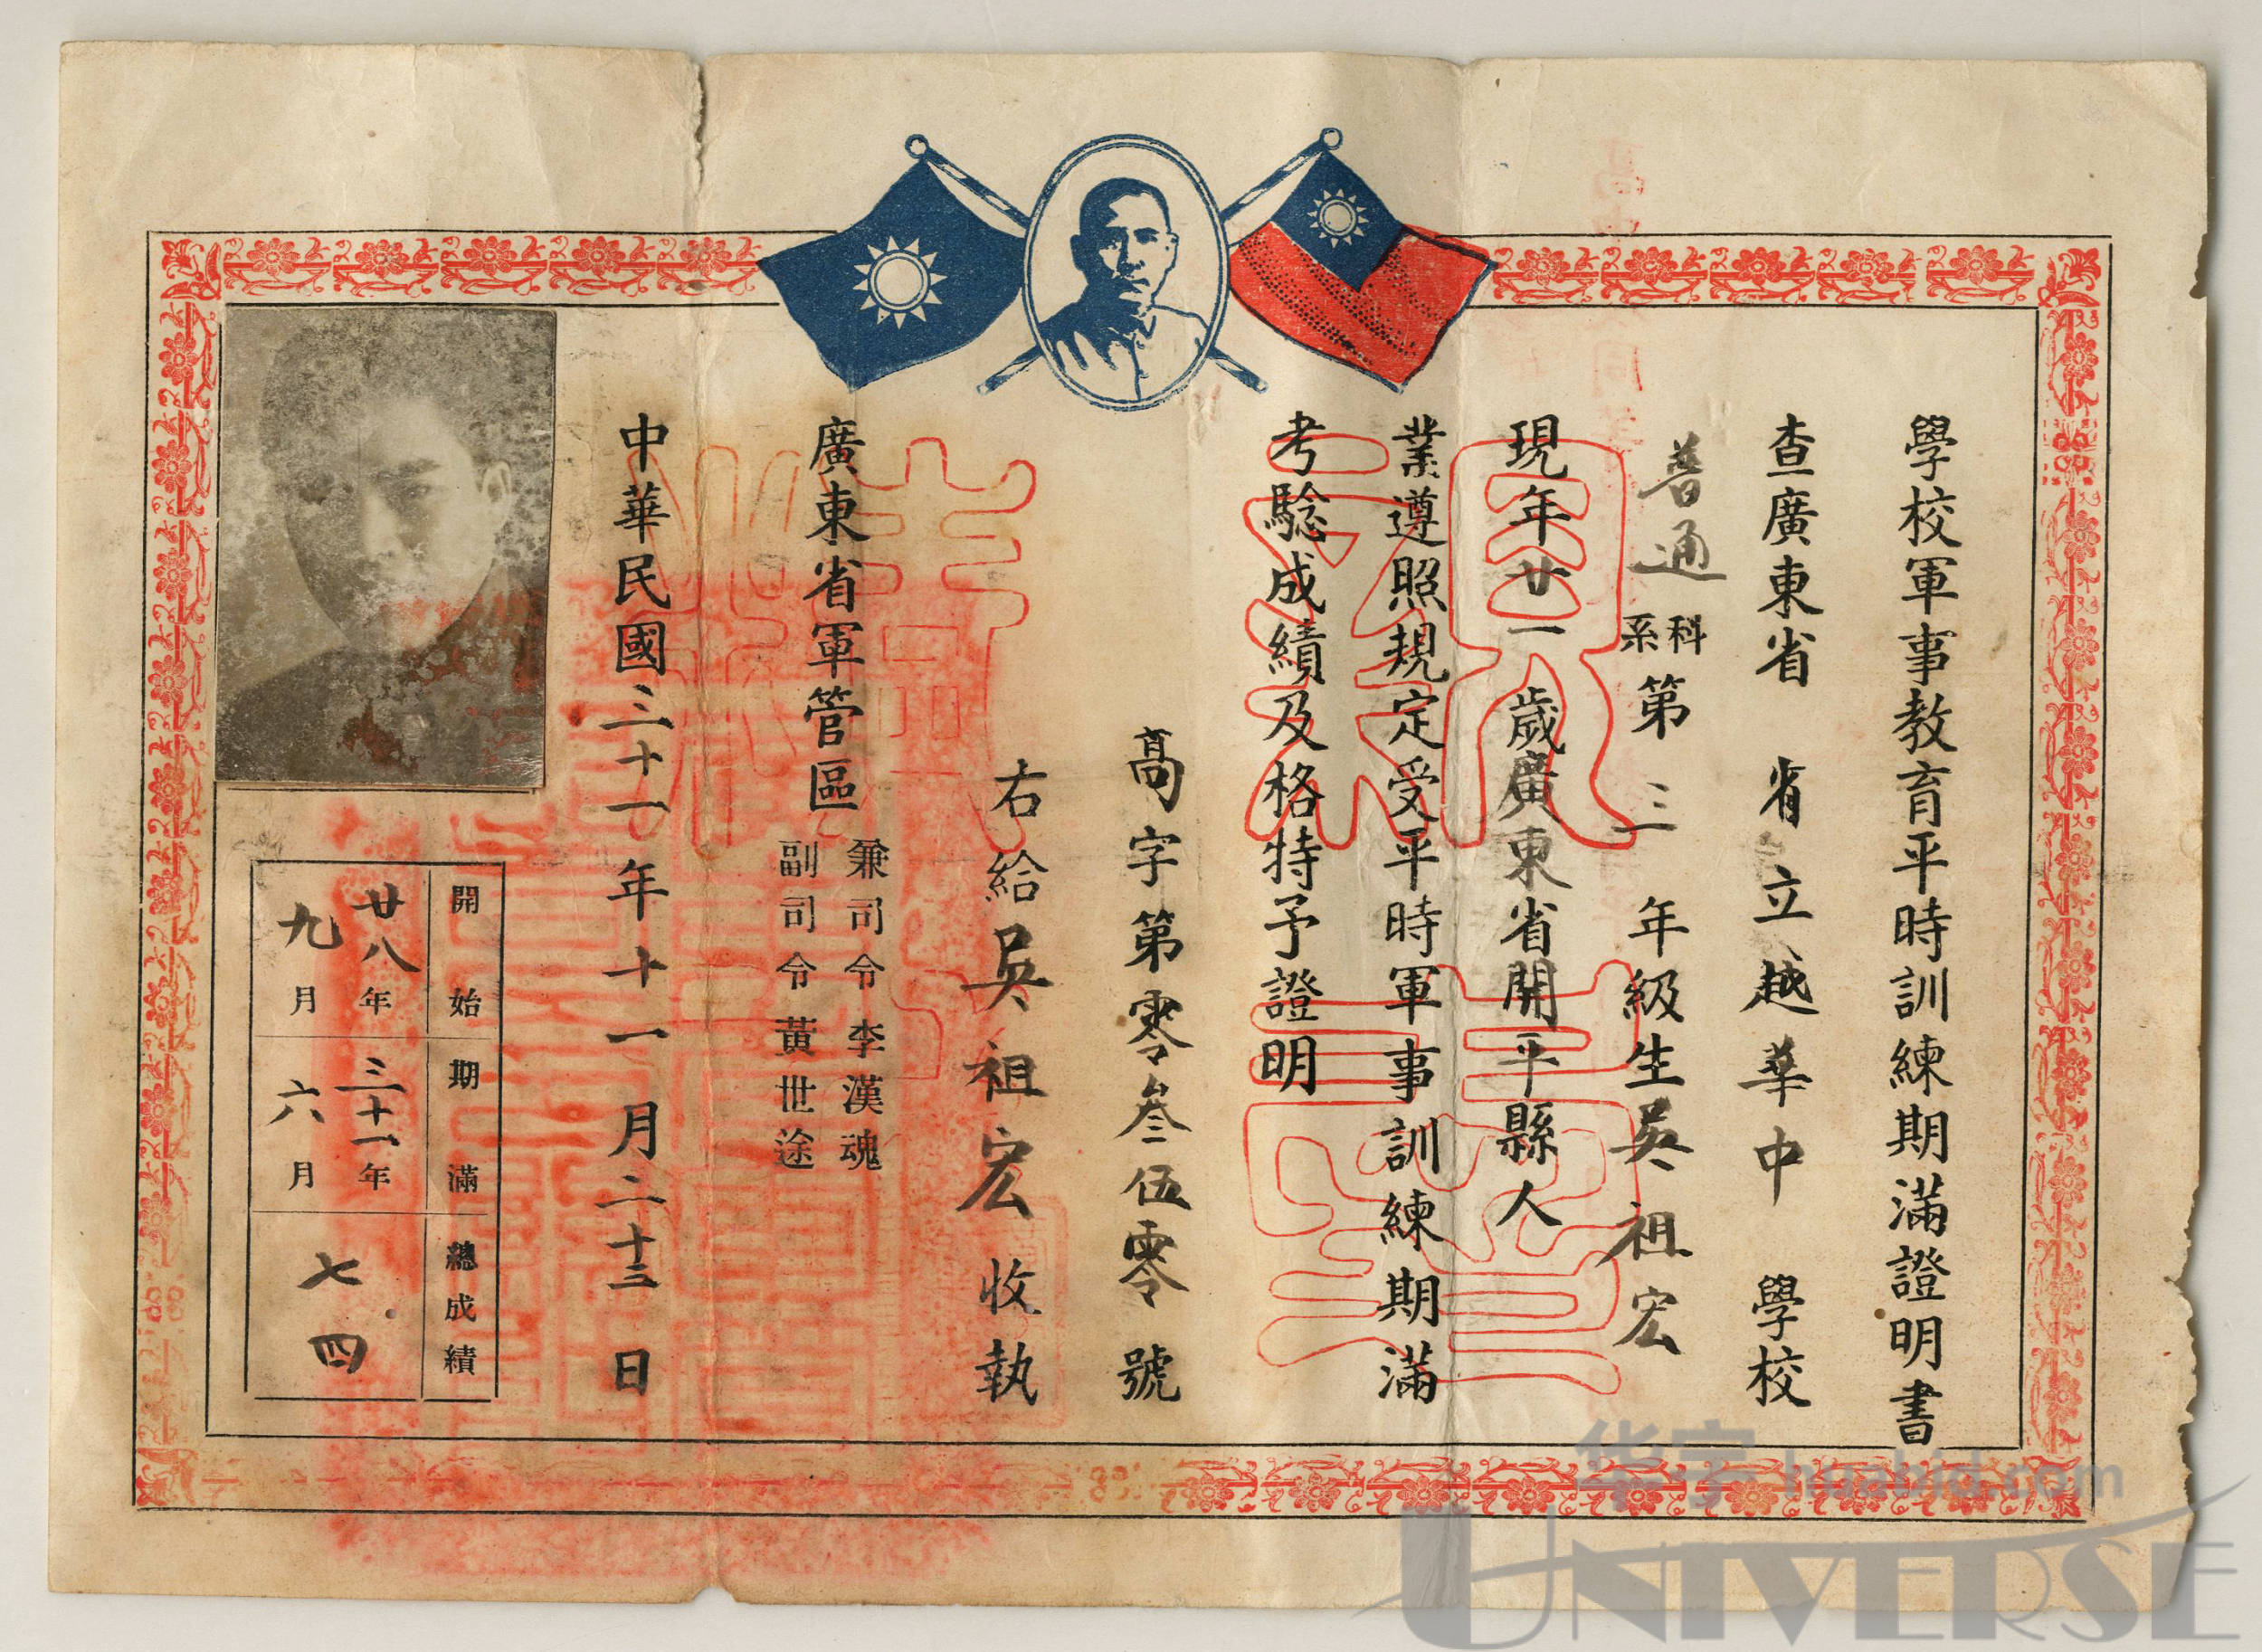 學校軍事教育平時訓練期滿證明書
查廣東省 省立越華中 學校
普通科系第 三 年級生吳祖宏
現年廿一歲廣東省開平縣人
業遵照規定受平時軍事訓練期滿
考驗成績及格特予證明
高字第零叁伍零號
右給吳祖宏收執
廣東省軍管區
兼司令李漢魂
副司令黃世途
中華民國三十一年十一月二十三日
開始 期滿 總成績
廿八年 三十一年 七四
九月 六月
华宇 huabid.com
UNIVERSE